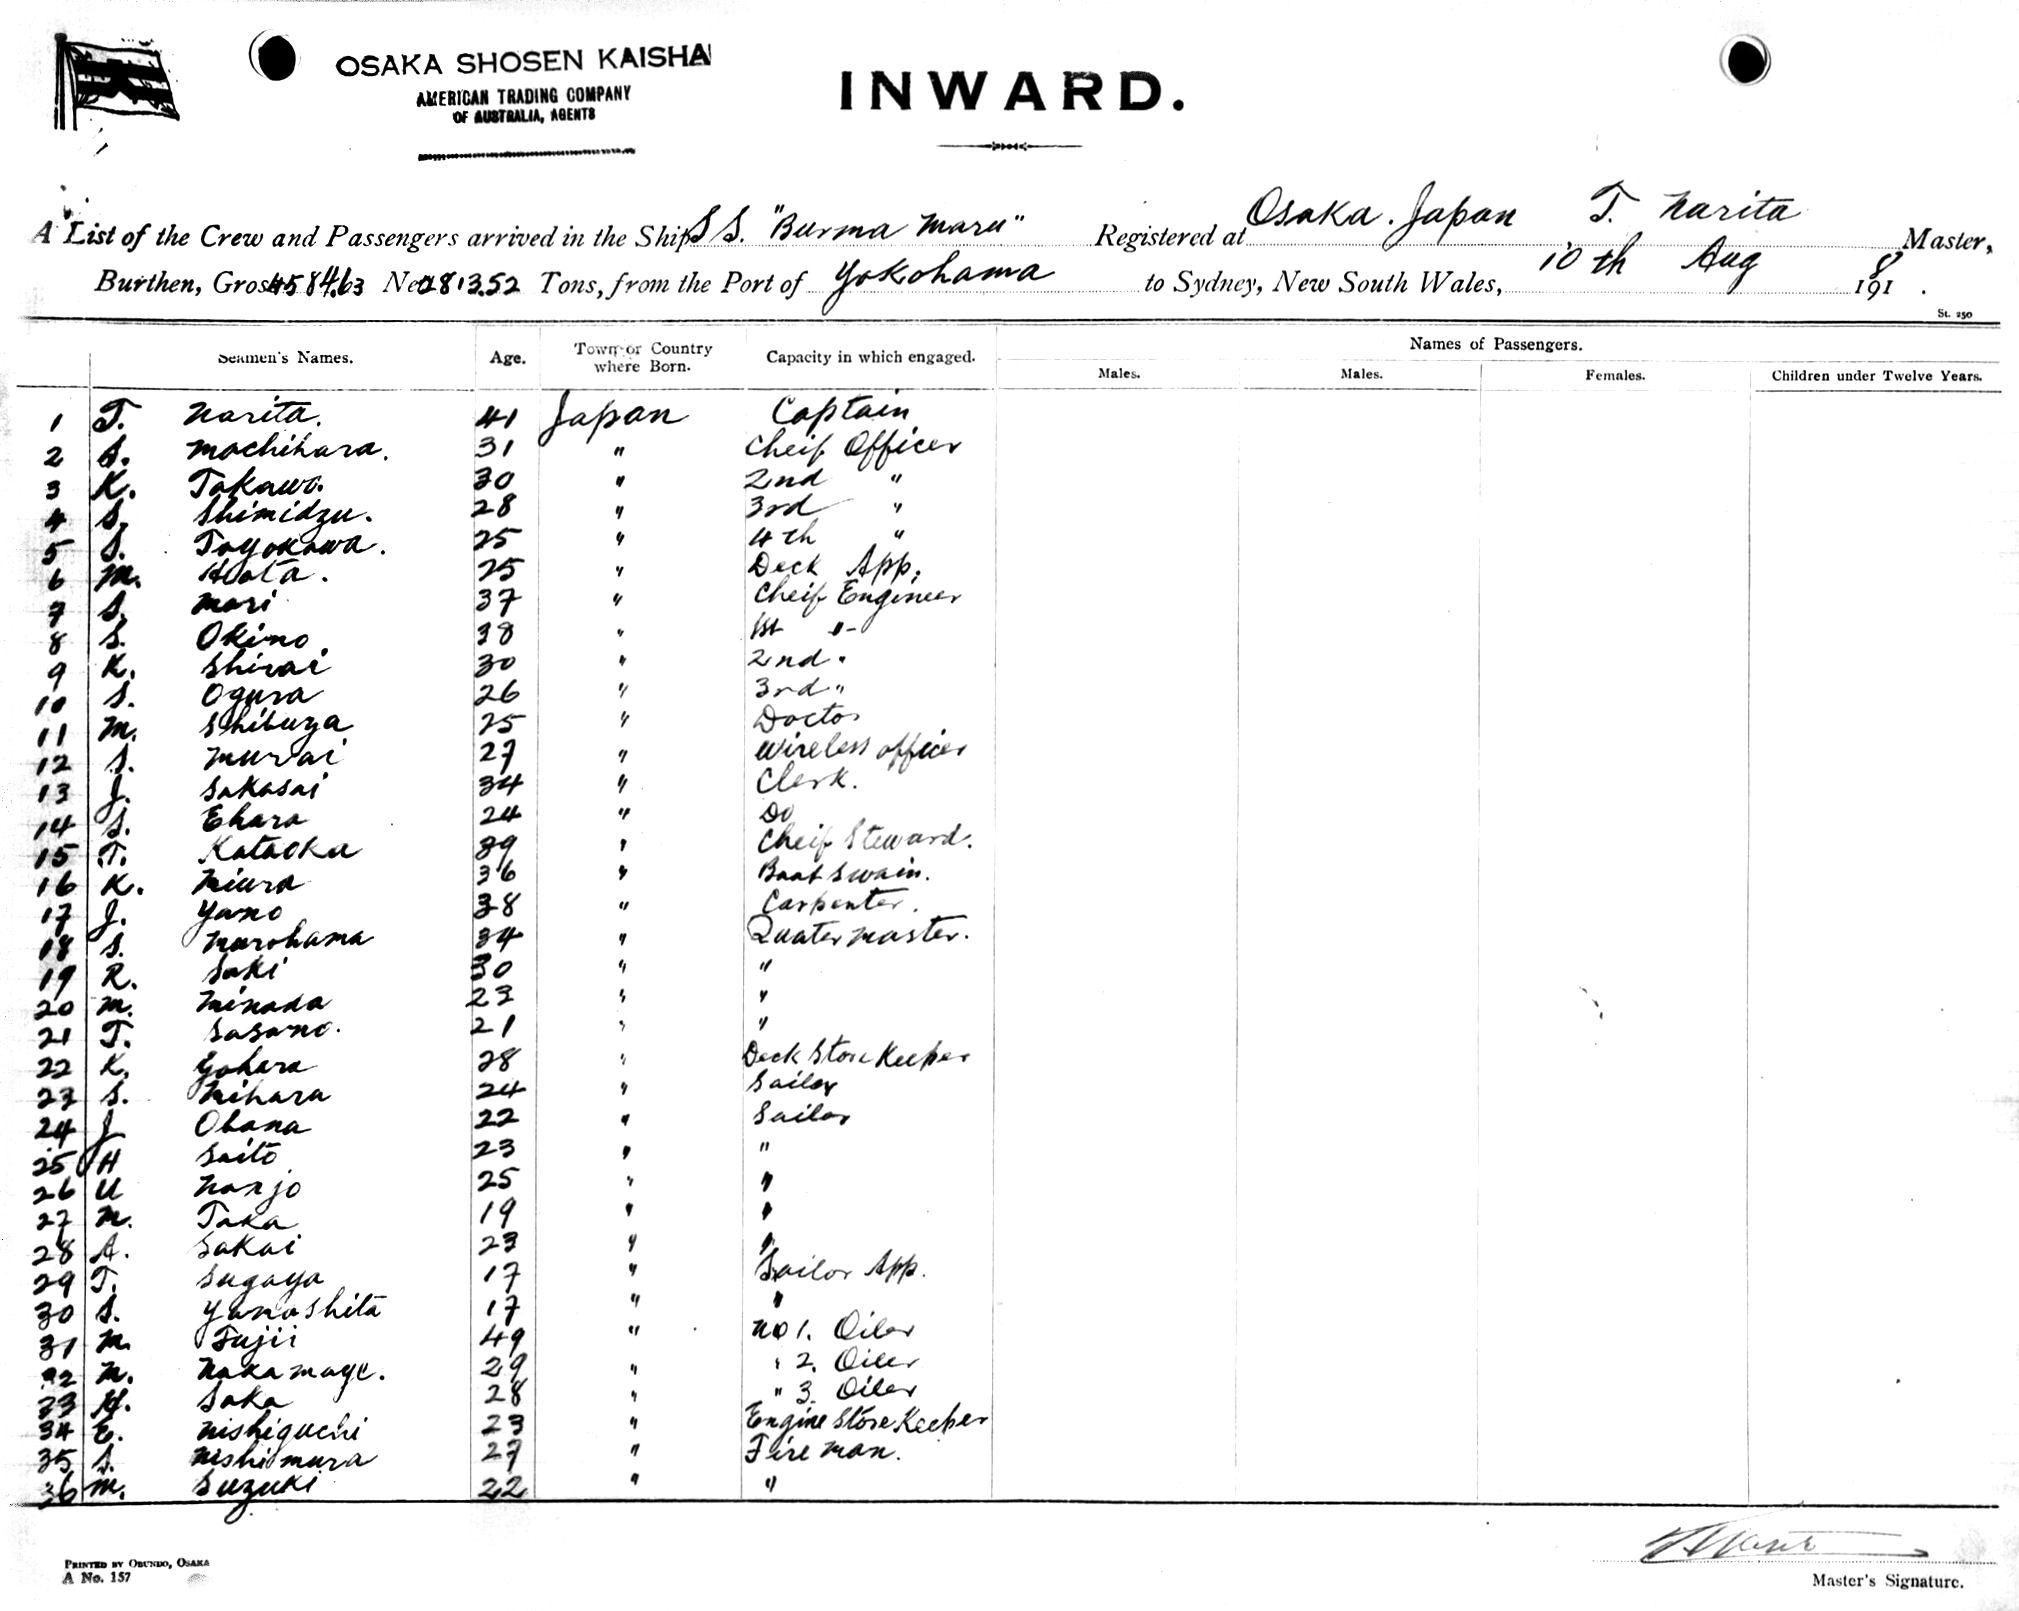 OSAKA SHOSEN KAISHA
AMERICAN TRADING COMPANY
OF AUSTRALIA, AGENTS
INWARD.
A List of the Crew and Passengers arrived in the Ship S S. "Burma Maru" Registered at Osaka. Japan T. Narita Master,
Burthen, Gross 4584.63 Net 2813.52 Tons, from the Port of Yokohama to Sydney, New South Wales, 10th Aug 1918.
St. 250
Seamen's Names. Age. Town or Country where Born. Capacity in which engaged. Names of Passengers.
Males. Males. Females. Children under Twelve Years.
1 T. Narita. 41 Japan Captain
2 S. Mochihara. 31 " Cheif Officer
3 K. Takawa. 30 " 2nd "
4 S. Shimidzu. 28 " 3rd "
5 S. Toyokawa. 25 " 4th "
6 M. Hota. 25 " Deck App.
7 S. Mori 37 " Cheif Engineer
8 S. Okino 38 " 1st "
9 K. Shirai 30 " 2nd "
10 S. Ogura 26 " 3rd "
11 M. Shibuya 25 " Doctor
12 S. Murai 27 " Wireless officer
13 J. Sakasai 34 " Clerk.
14 S. Ehara 24 " Do
15 T. Kataoka 39 " Cheif Steward.
16 K. Miura 36 " Boat Swain.
17 J. Yano 38 " Carpenter.
18 S. Murohama 34 " Quater Master.
19 R. Saki 30 " "
20 M. Minada 23 " "
21 T. Sasano. 21 " "
22 K. Gohara 28 " Deck Store Keeper
23 S. Mihara 24 " Sailor
24 J Obana 22 " Sailor
25 H Saito 23 " "
26 U Nanjo 25 " "
27 N. Taka 19 " "
28 A. Sakai 23 " "
29 T. Sugaya 17 " Sailor App.
30 S. Yamashita 17 " "
31 M. Fujii 49 " No 1. Oiler
32 M. Nakamage. 29 " " 2. Oiler
33 H. Saka 28 " " 3. Oiler
34 E. Nishiguchi 23 " Engine Store Keeper
35 S. Nishimura 27 " Fire man.
36 M. Suzuki 22 " "
PRINTED BY OBUNDO, OSAKA
A No. 157
Master's Signature.